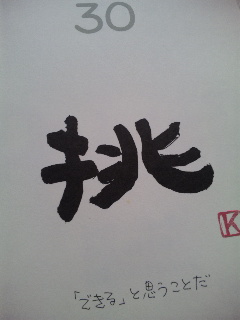 30
挑
「できる」と思うことだ
K